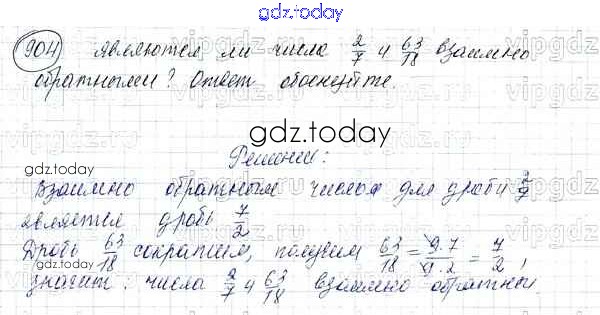 gdz.today
904 являются ли числа 2/7 и 63/18 взаимно
обратными? Ответ обоснуйте.
gdz.today
Решение:
gdz.today
Взаимно обратным числом для дроби 2/7
является дробь 7/2
Дробь 63/18 сократим, получим 63/18 = 9·7/9·2 = 7/2,
gdz.today
значит: числа 2/7 и 63/18 взаимно обратны.